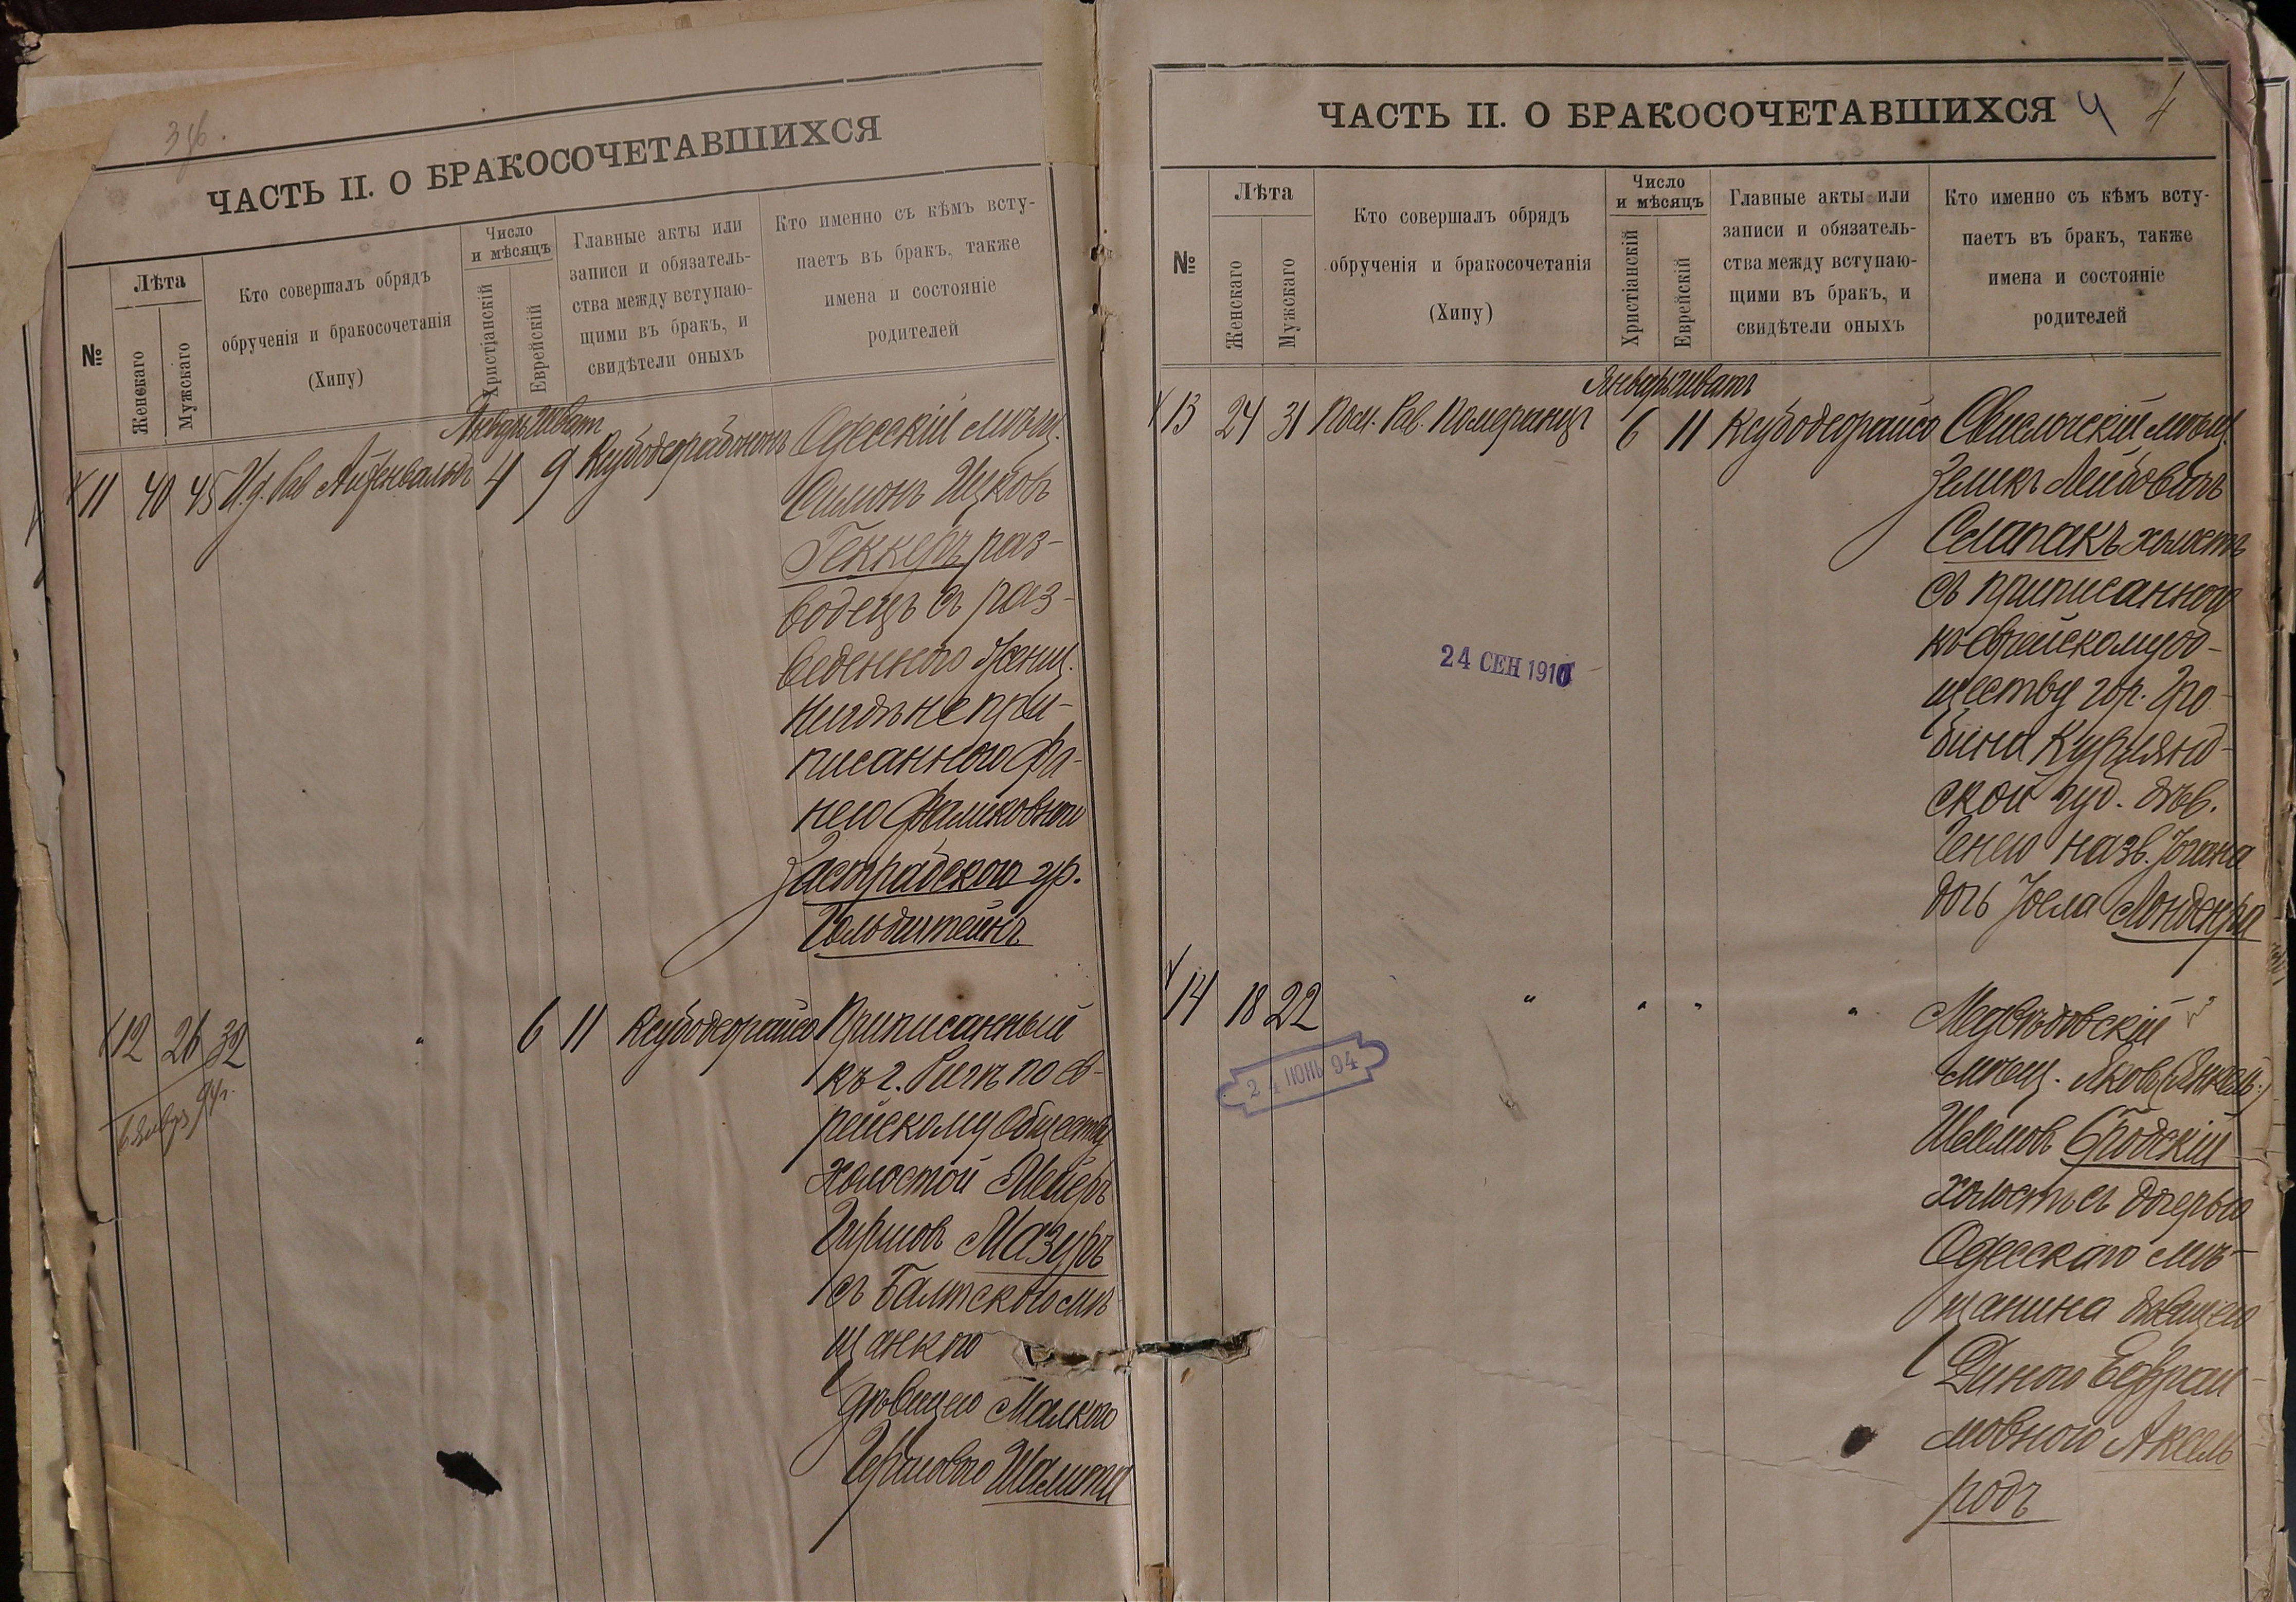 3 об.
ЧАСТЬ II. О БРАКОСОЧЕТАВШИХСЯ
№
Лѣта
Женскаго
Мужскаго
Кто совершалъ обрядъ
обрученія и бракосочетанія
(Хипу)
Число
и мѣсяцъ
Христіанскій
Еврейскій
Главные акты или
записи и обязатель-
ства между вступаю-
щими въ бракъ, и
свидѣтели оныхъ
Кто именно съ кѣмъ всту-
паетъ въ бракъ, также
имена и состояніе
родителей
Январь Шват
11 40 45 И.д. Рав Айзенвальдъ 4 9
Одесскій мѣщ.
Симонъ Ицков
Геккеръ раз-
водецъ съ раз-
веденною женщ.
нигдѣ не при-
писанною
нею Фаликовною
гр.
Гольдштейнъ
12 26 32 " 6 11 Ксубодеорайсо
Приписанный
къ г. Ригѣ по ев-
рейскому обществу
холостой Мейеръ
Гиршов Мазуръ
съ Балтскою мѣ
щанкою
дѣвицею Малкою
6 Январ 94 г.
ЧАСТЬ II. О БРАКОСОЧЕТАВШИХСЯ
4 4
№
Лѣта
Женскаго
Мужскаго
Кто совершалъ обрядъ
обрученія и бракосочетанія
(Хипу)
Число
и мѣсяцъ
Христіанскій
Еврейскій
Главные акты или
записи и обязатель-
ства между вступаю-
щими въ бракъ, и
свидѣтели оныхъ
Кто именно съ кѣмъ всту-
паетъ въ бракъ, также
имена и состояніе
родителей
Январь Шватъ
13 24 31 Пом. Рав. Померанцъ 6 11 Ксубодеорайсо
Свислочскій мѣщ.
Зелик Лейбовичъ
Слапакъ холостъ
съ приписанною
къ еврейскому об-
ществу гор. Гро-
бина Курлянд-
ской губ. дѣв.
Генею назв. Іогана
дочь Іоела
24 СЕН 1910
14 18 22 " " " "
Медвѣдовскій
мѣщ. Яков (Янкель)
Шлемов Бродскій
холостъ съ дочерью
Одесскаго мѣ-
щанина дѣвицею
Диною Ефраи
мовною Аксель
родъ
24 ІЮНЬ 94